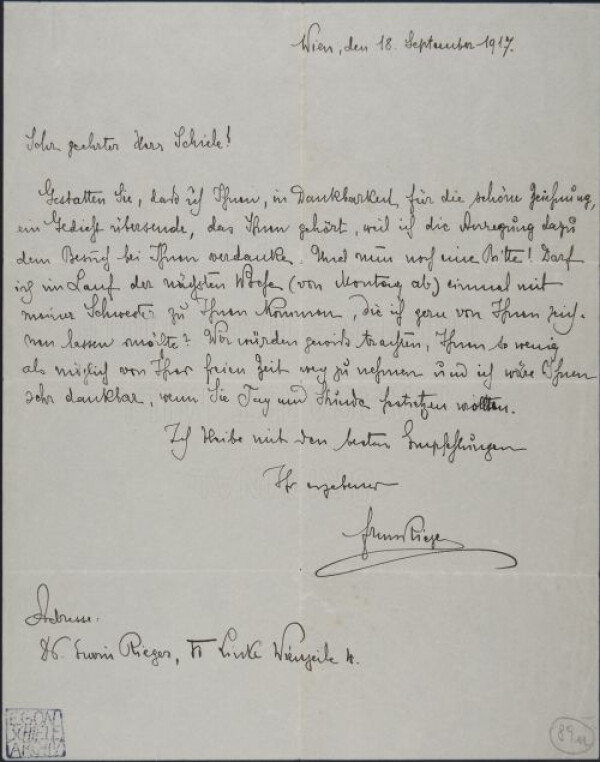 Wien, den 18. September 1917.
Sehr geehrter Herr Schiele!
Gestatten Sie, daß ich Ihnen, in Dankbarkeit für die schöne Zeichnung,
ein Gedicht übersende, das Ihnen gehört, weil ich die Anregung dazu
dem Besuch bei Ihnen verdanke. Und nun noch eine Bitte! Darf
ich im Lauf der nächsten Woche (von Montag ab) einmal mit
meiner Schwester zu Ihnen kommen, die ich gern von Ihnen zeich-
nen lassen möchte? Wir würden gewiß trachten, Ihnen so wenig
als möglich von Ihrer freien Zeit weg zu nehmen und ich wäre Ihnen
sehr dankbar, wenn Sie Tag und Stunde festsetzen wollten.
Ich bleibe mit den besten Empfehlungen
Ihr ergebener
Erwin Rieger
Adresse:
Dr. Erwin Rieger, VI Linke Wienzeile
EGON
SCHIELE
ARCHIV